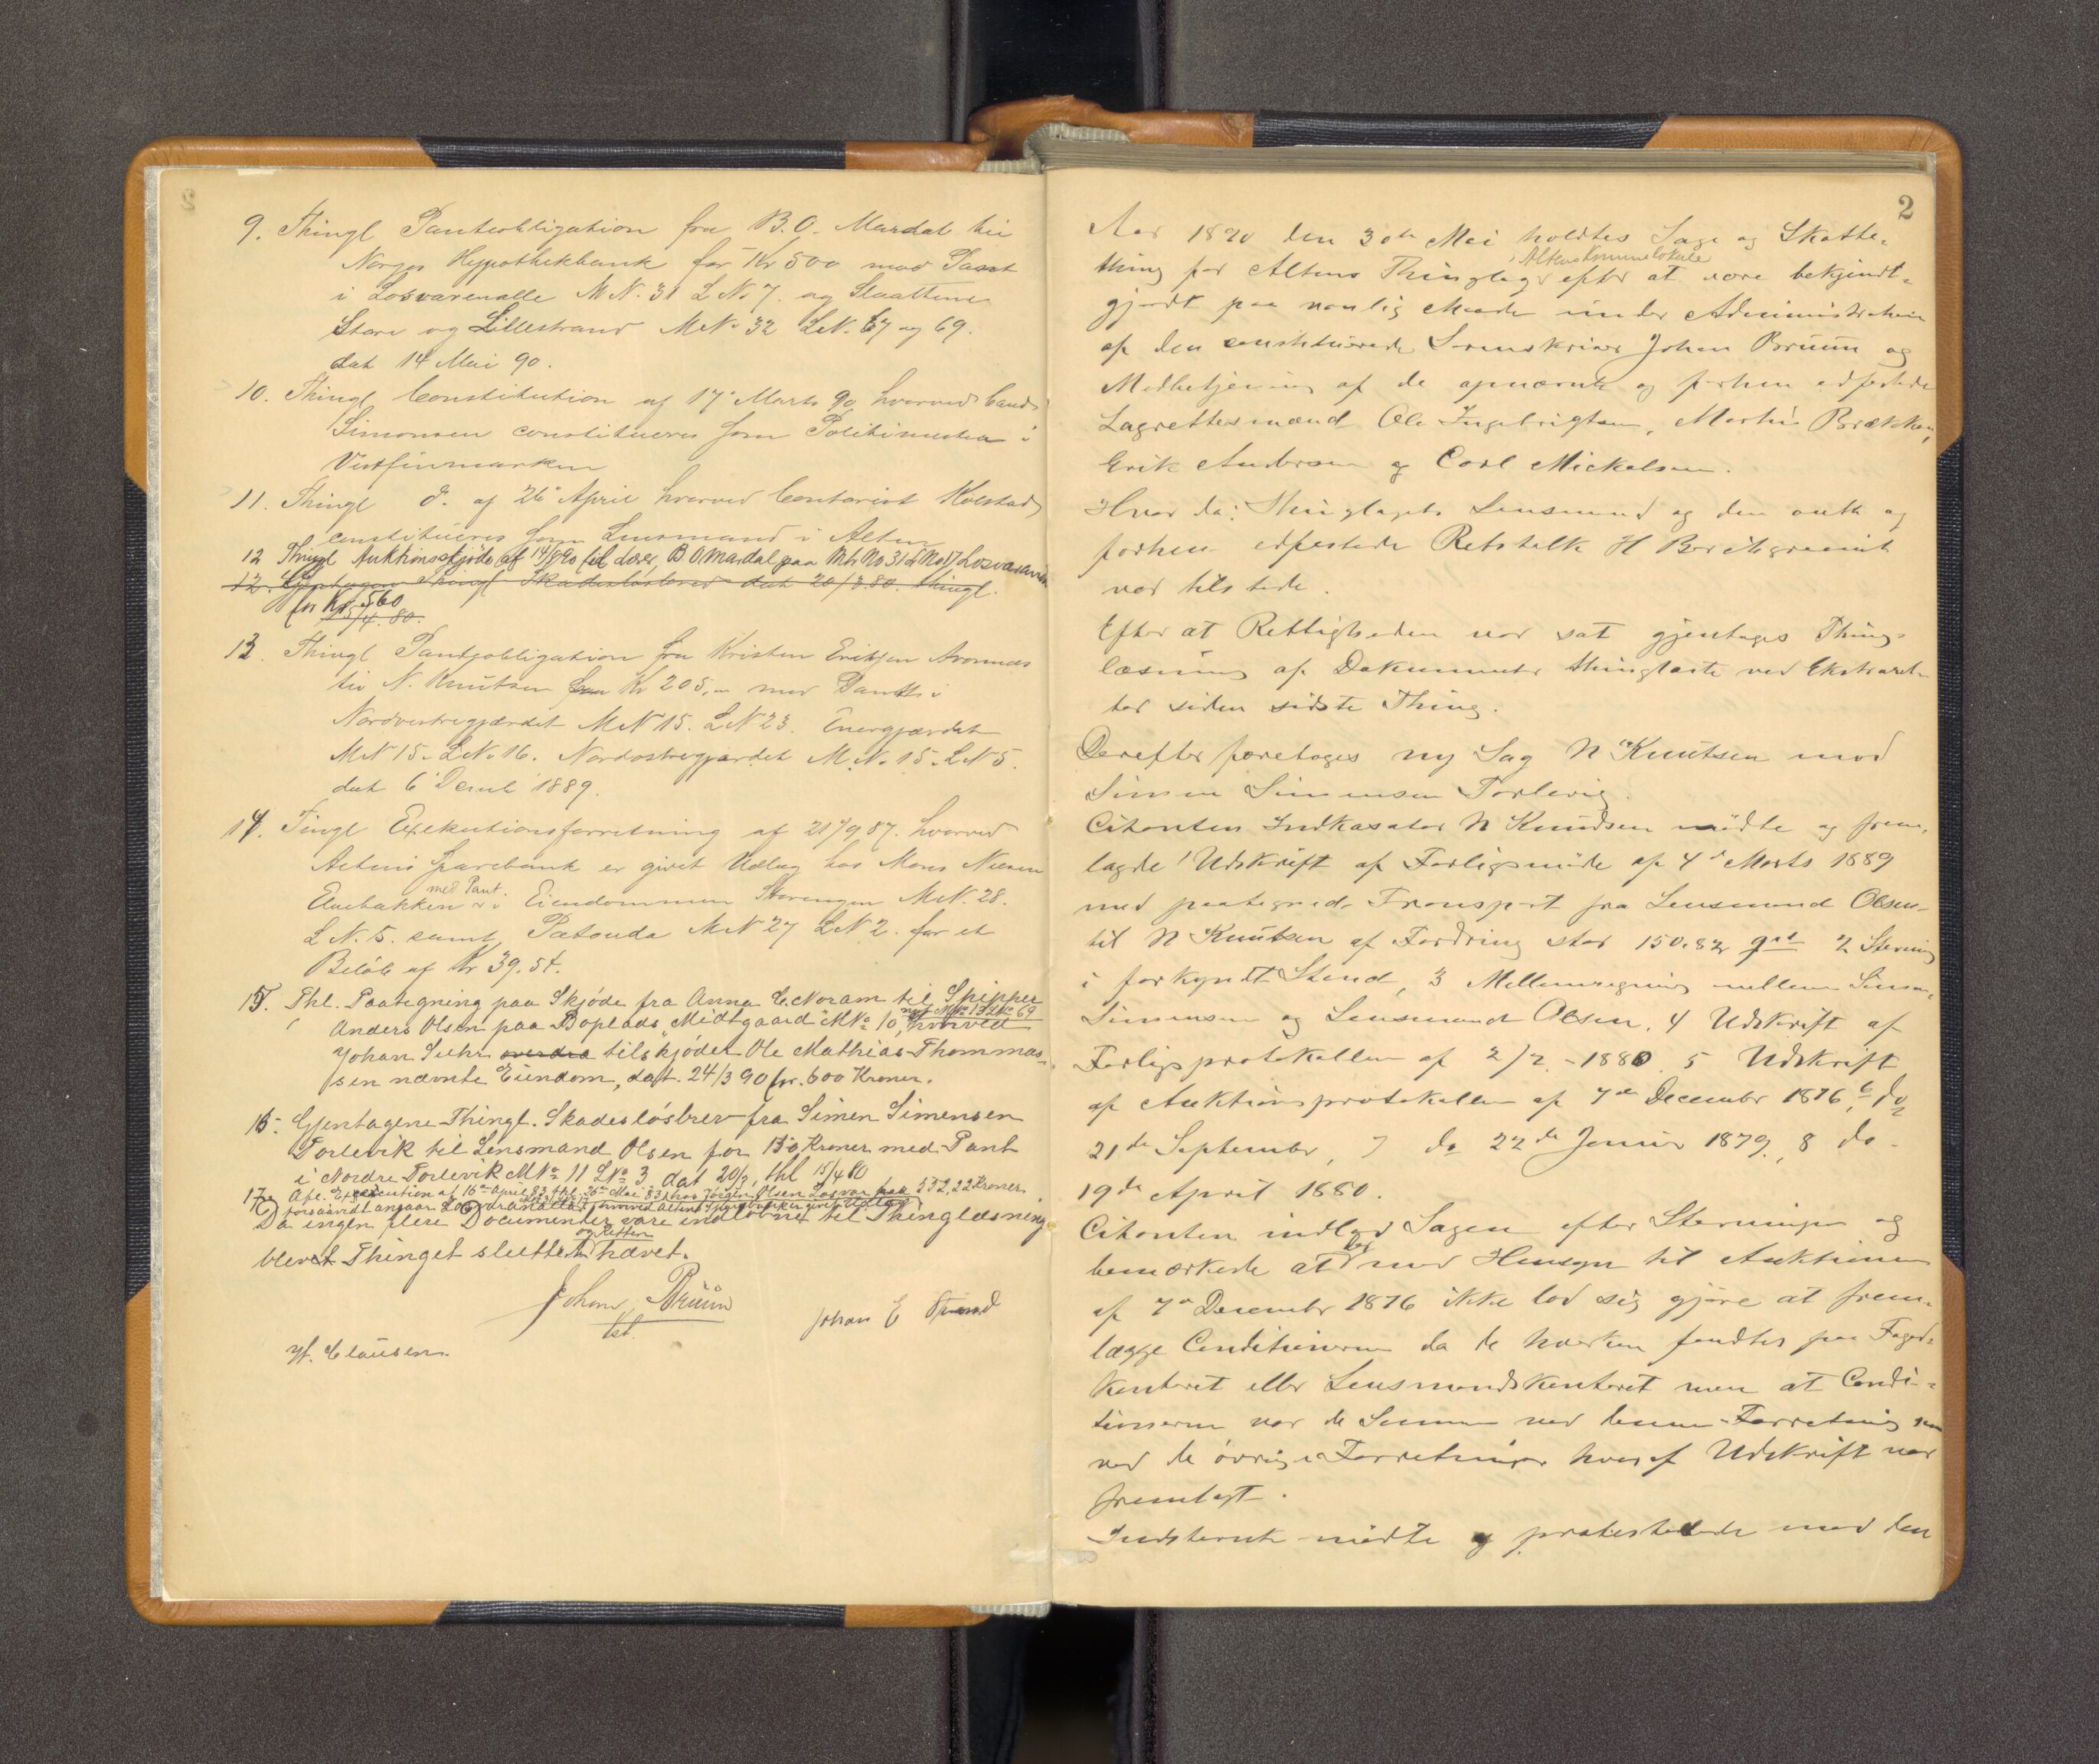 9. Thingl Panteobligation fra B.O. Mardal til
Norges Hypothekbank for Kr 500 mod Pant
i Losvarenalle M N. 31 L No 7. og Slaattene
Store og Lillestrand M No 32 L N. 67 og 69.
dat 14 Mai 90.
10. Thingl Constitution af 17de Marts 90 hvorved Cand
Simonsen constitueres som Politimester i
Vestfinmarken
11. Thingl do. af 26de April hvorved Contorist Kolstad
constitueres som Lensmand i Alten
12 Thingl Auktionsskjøde af 14/5 90 til Lærer B O Mardal paa Mt. No 31 L No 7 Losvar
12. Gjentagen Thingl Skadesløsbrev dat 20/3 80. thingl.
for Kr. 560
15/4. 80.
13. Thingl Pantobligation fra Kristen Eriksen Aronnes
til N. Knutsen Kr 205,- med Pant i
Nordvestregjærdet M N 15. L N 23. Energjærdet
M N 15. L No 16. Nordostregjærdet M. N. 15. L N 5.
dat 6 Decemb 1889.
14. Tingl Exekutionsforretning af 21/9 87. hvorved
Altens Sparebank er givet Udlæg hos Mons Nilsen
med Pant.
Elvebakken i Eiendommen Storengen M N. 28.
L N. 5. samt M N 27 L N 2. for et
Beløb af Kr 39.54.
15. Thl. Paategning paa Skjøde fra Anna E. Noram til Skipper
nyt M No 13 L No 69
Anders Olsen paa Boplads "Midtgaard" M No 10, hvorved
Johan Suhr overdra tilskjøder Ole Mathias Thommas-
sen nævnte Eiendom, dat. 24/3 90 for 600 Kroner.
16. Gjentagene Thingl. Skadesløsbrev fra Simen Simensen
Torlevik til Lensmand Olsen for 150 Kroner med Pant
i Nordre Torlevik M No 11 L No 3, dat 20/3, thl 15/4 80
17. Afl. Execution af 16de April 83, thl. 26de Mai 83, hos Jørgen Olsen Losvar for 532,22 Kroner
forsaavidt angaar hvorved Altens Sparebank er givet Udlæg
Da ingen flere Documenter vare indløbne til Thinglæsning
og Retten
blev Thinget sluttet hævet.
Johan Bruun
kst.
Johan E Strand
H. Clausen.
2
Aar 1890 den 30de Mai holdtes Sage og Skatte-
i Altens Kommunelokale
thing for Altens Thinglag efter at være bekjendt-
gjordt paa vanlig Maade under Administration
af den constituerede Sorenskriver Johan Bruun og
Medbetjening af de opnævnte og forhen edfæstede
Lagrettesmænd Ole Ingebrigtsen, Martin Brækken,
Erik Andersen og Carl Mickelsen.
Hvor da: Thinglagets Lensmand og den antk og
forhen edfæstede Retstolk H
var tilstede.
Efter at Rettigheden var sat gjentoges Thing-
læsning af Dokumenter thinglæste ved Ekstraret-
ter siden sidste Thing.
Derefter foretoges ny Sag N Knutsen mod
Simen Simensen Torlevig.
Citanten Indkasator N Knudsen mødte og frem-
lagde 1 Udskrift af Forligsmøde af 4de Marts 1889
med paategnede Transport fra Lensmand Olsen
til N Knutsen af Fordring stor 150.82 2 Stevning
i forkyndt Stand, 3 Mellemregning mellem Simen
Simensen og Lensmand Olsen. 4 Udskrift af
Forligsprotokollen af 2/2 - 1880. 5 Udskrift
af Auktionsprotokollen af 7de December 1876, 6 do
21de September, 7 do 22de Januar 1879, 8 do
19de April 1880.
Citanten indlod Sagen efter Stevningen og
det
bemærkede at med Hensyn til Auktionen
af 7de December 1876 ikke lod sig gjøre at frem-
lægge Conditionerne da de hverken fandtes paa Foged-
kontoret eller Lensmandskontoret men at Condi-
tionerne var de Samme ved denne Forretning som
ved de øvrige Forretninger hvoraf Udskrift var
fremlagt.
Indstevnte mødte og protesterede mod den